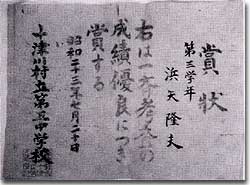 賞状
第三学年
浜矢隆夫
右は一斉考査の
成績優良につき
賞する
昭和二十三年七月二十日
十津川村立第三中学校